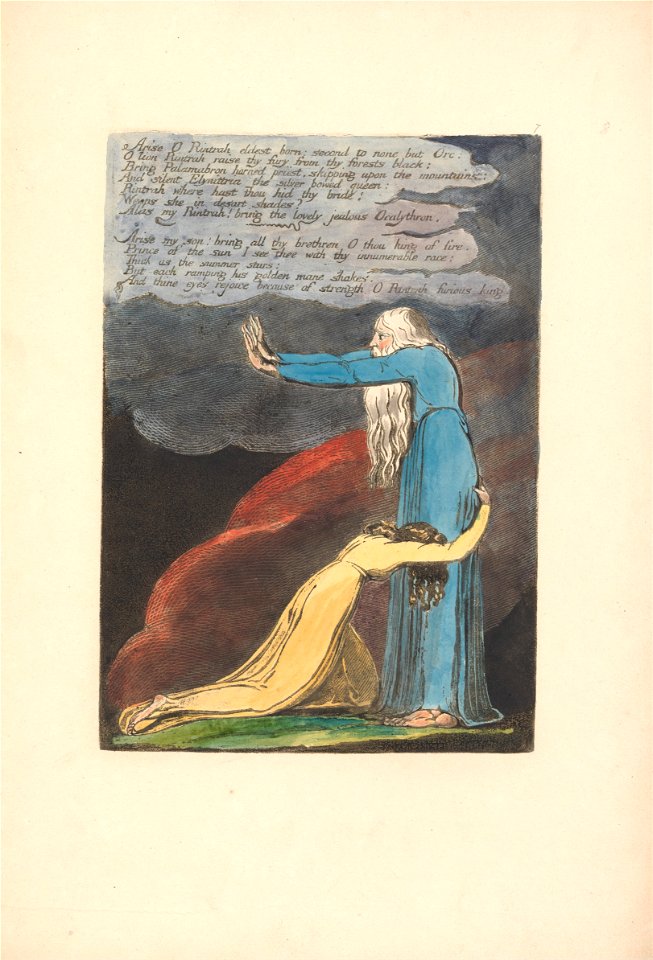 Arise O Rintrah eldest born: second to none but Orc:
O lion Rintrah raise thy fury from thy forests black:
Bring Palamabron horned priest, skipping upon the mountains:
And silent Elynittria the silver bowed queen:
Rintrah where hast thou hid thy bride!
Weeps she in desart shades?
Alas my Rintrah! bring the lovely jealous Ocalythron.
Arise my son! bring all thy brethren O thou king of fire.
Prince of the sun I see thee with thy innumerable race:
Thick as the summer stars:
But each ramping his golden mane shakes,
And thine eyes rejoice because of strength O Rintrah furious king.